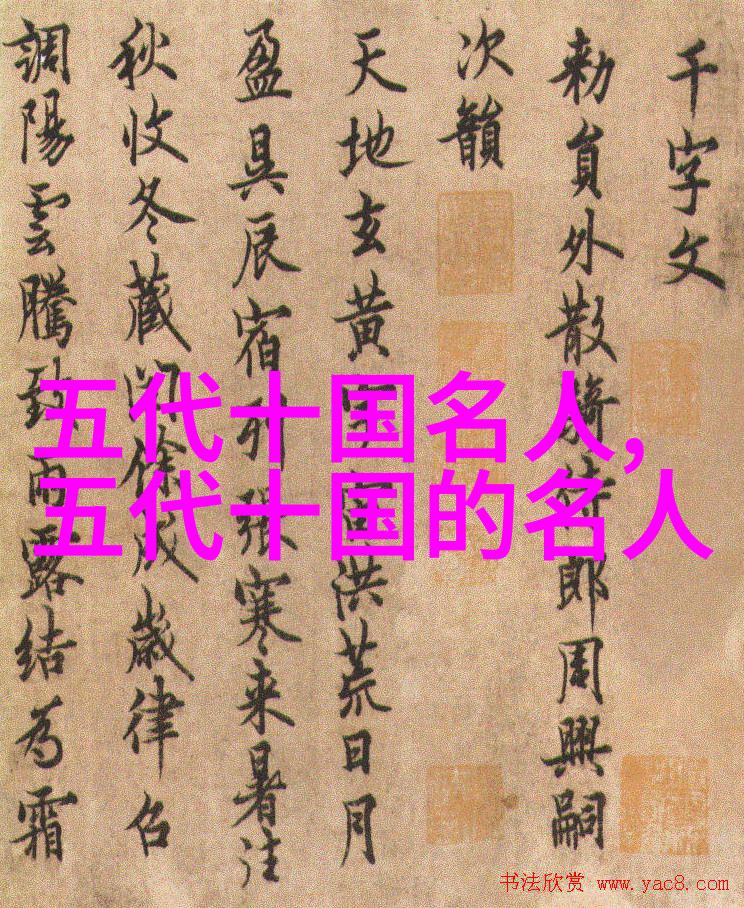 千字文
勑員外散騎侍郎周興嗣
次韻
天地玄黃宇宙洪荒日月
盈昃辰宿列張寒来暑往
秋收冬藏閏餘成歲律召
調陽雲騰致雨露結為霜
五代十国名人,
五代十国的名人
书法欣赏 www.yac8.com